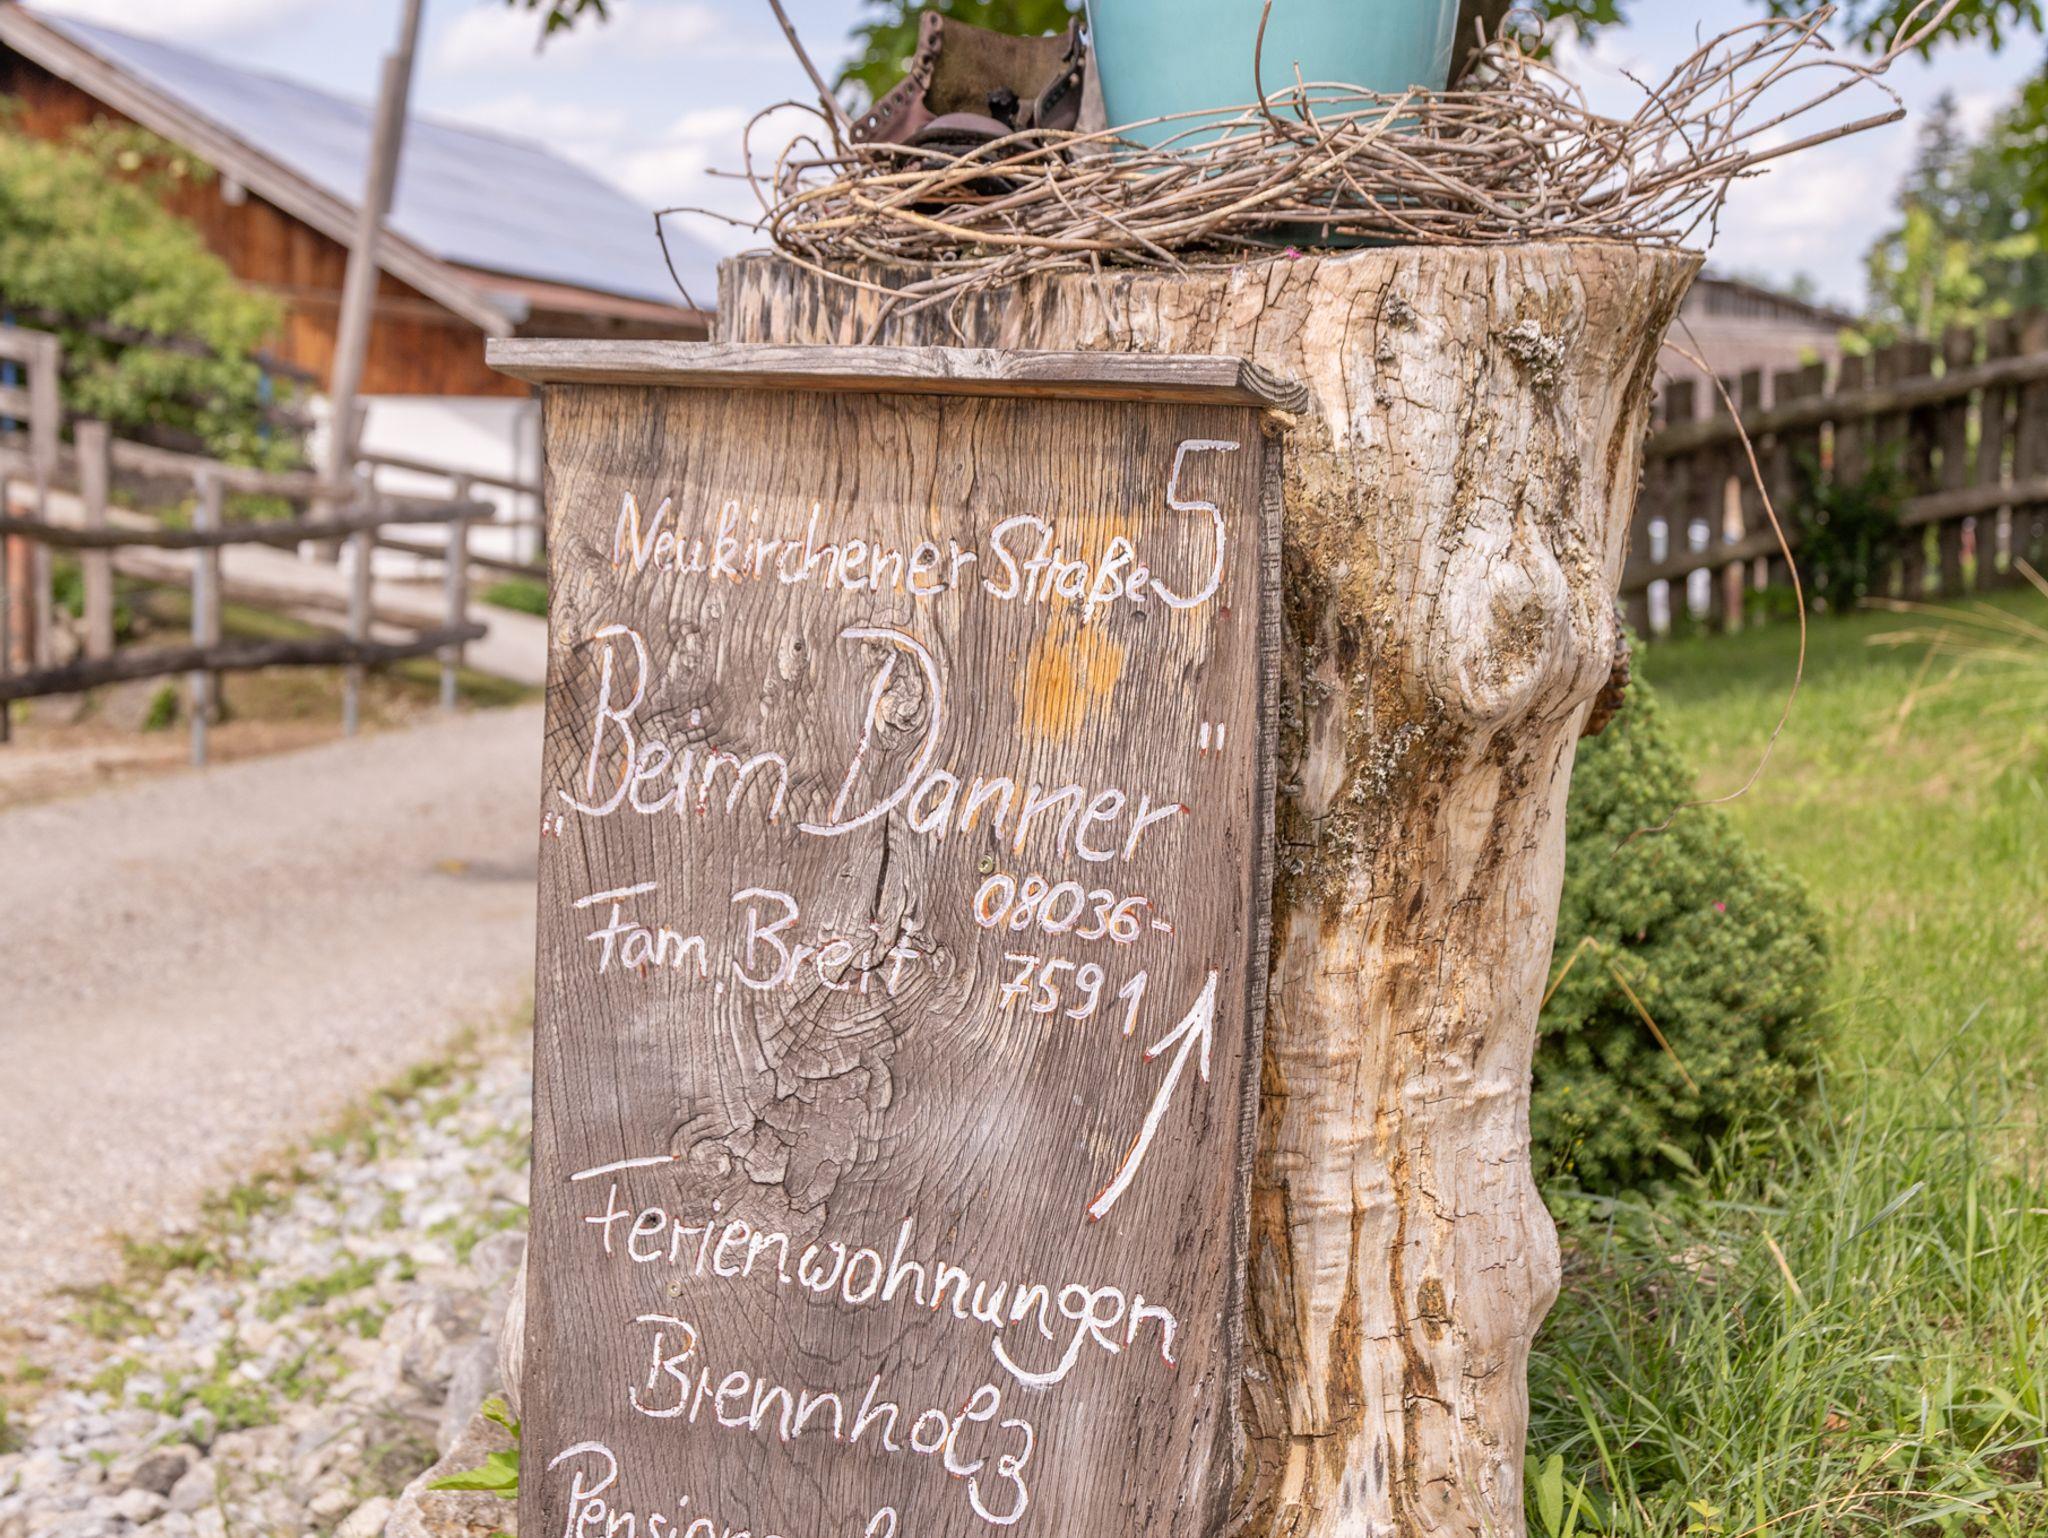 Neukirchener Straße 5
„Beim Danner"
Fam. Breit
08036-
7591
Ferienwohnungen
Brennholz